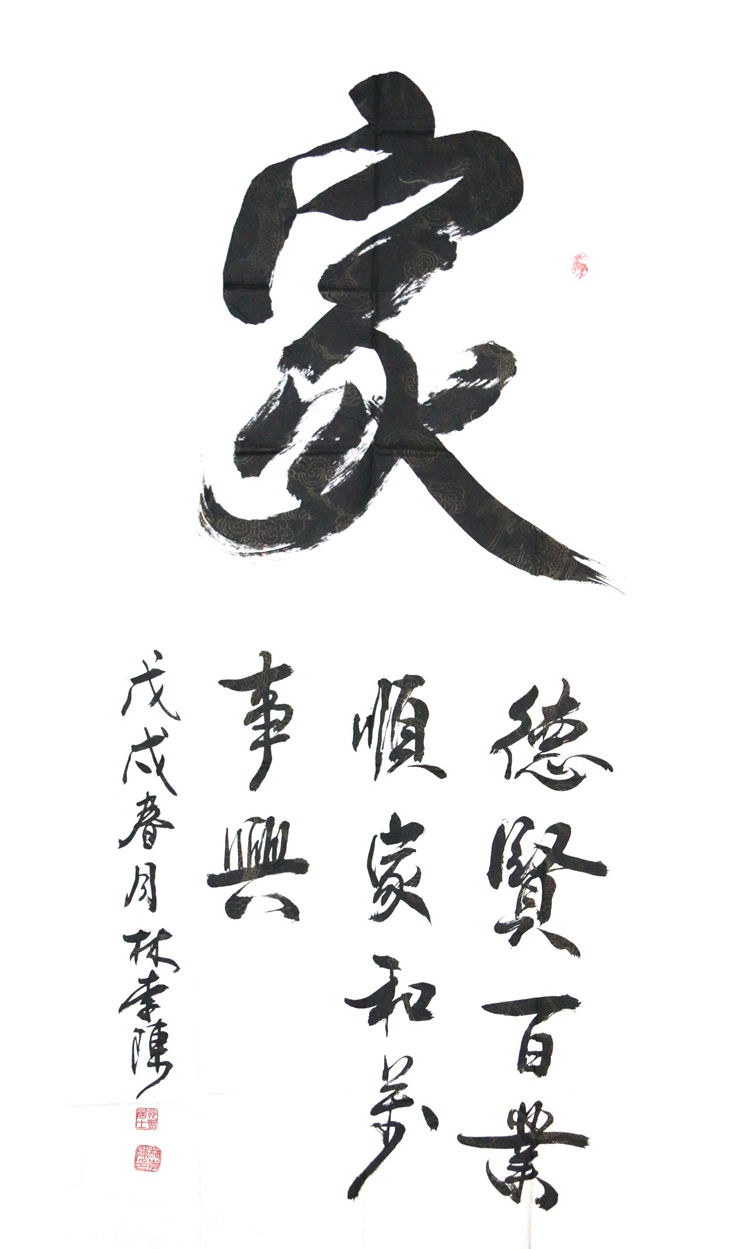 家
德賢百業
順家和萬
事興
戊戌春月林李陳